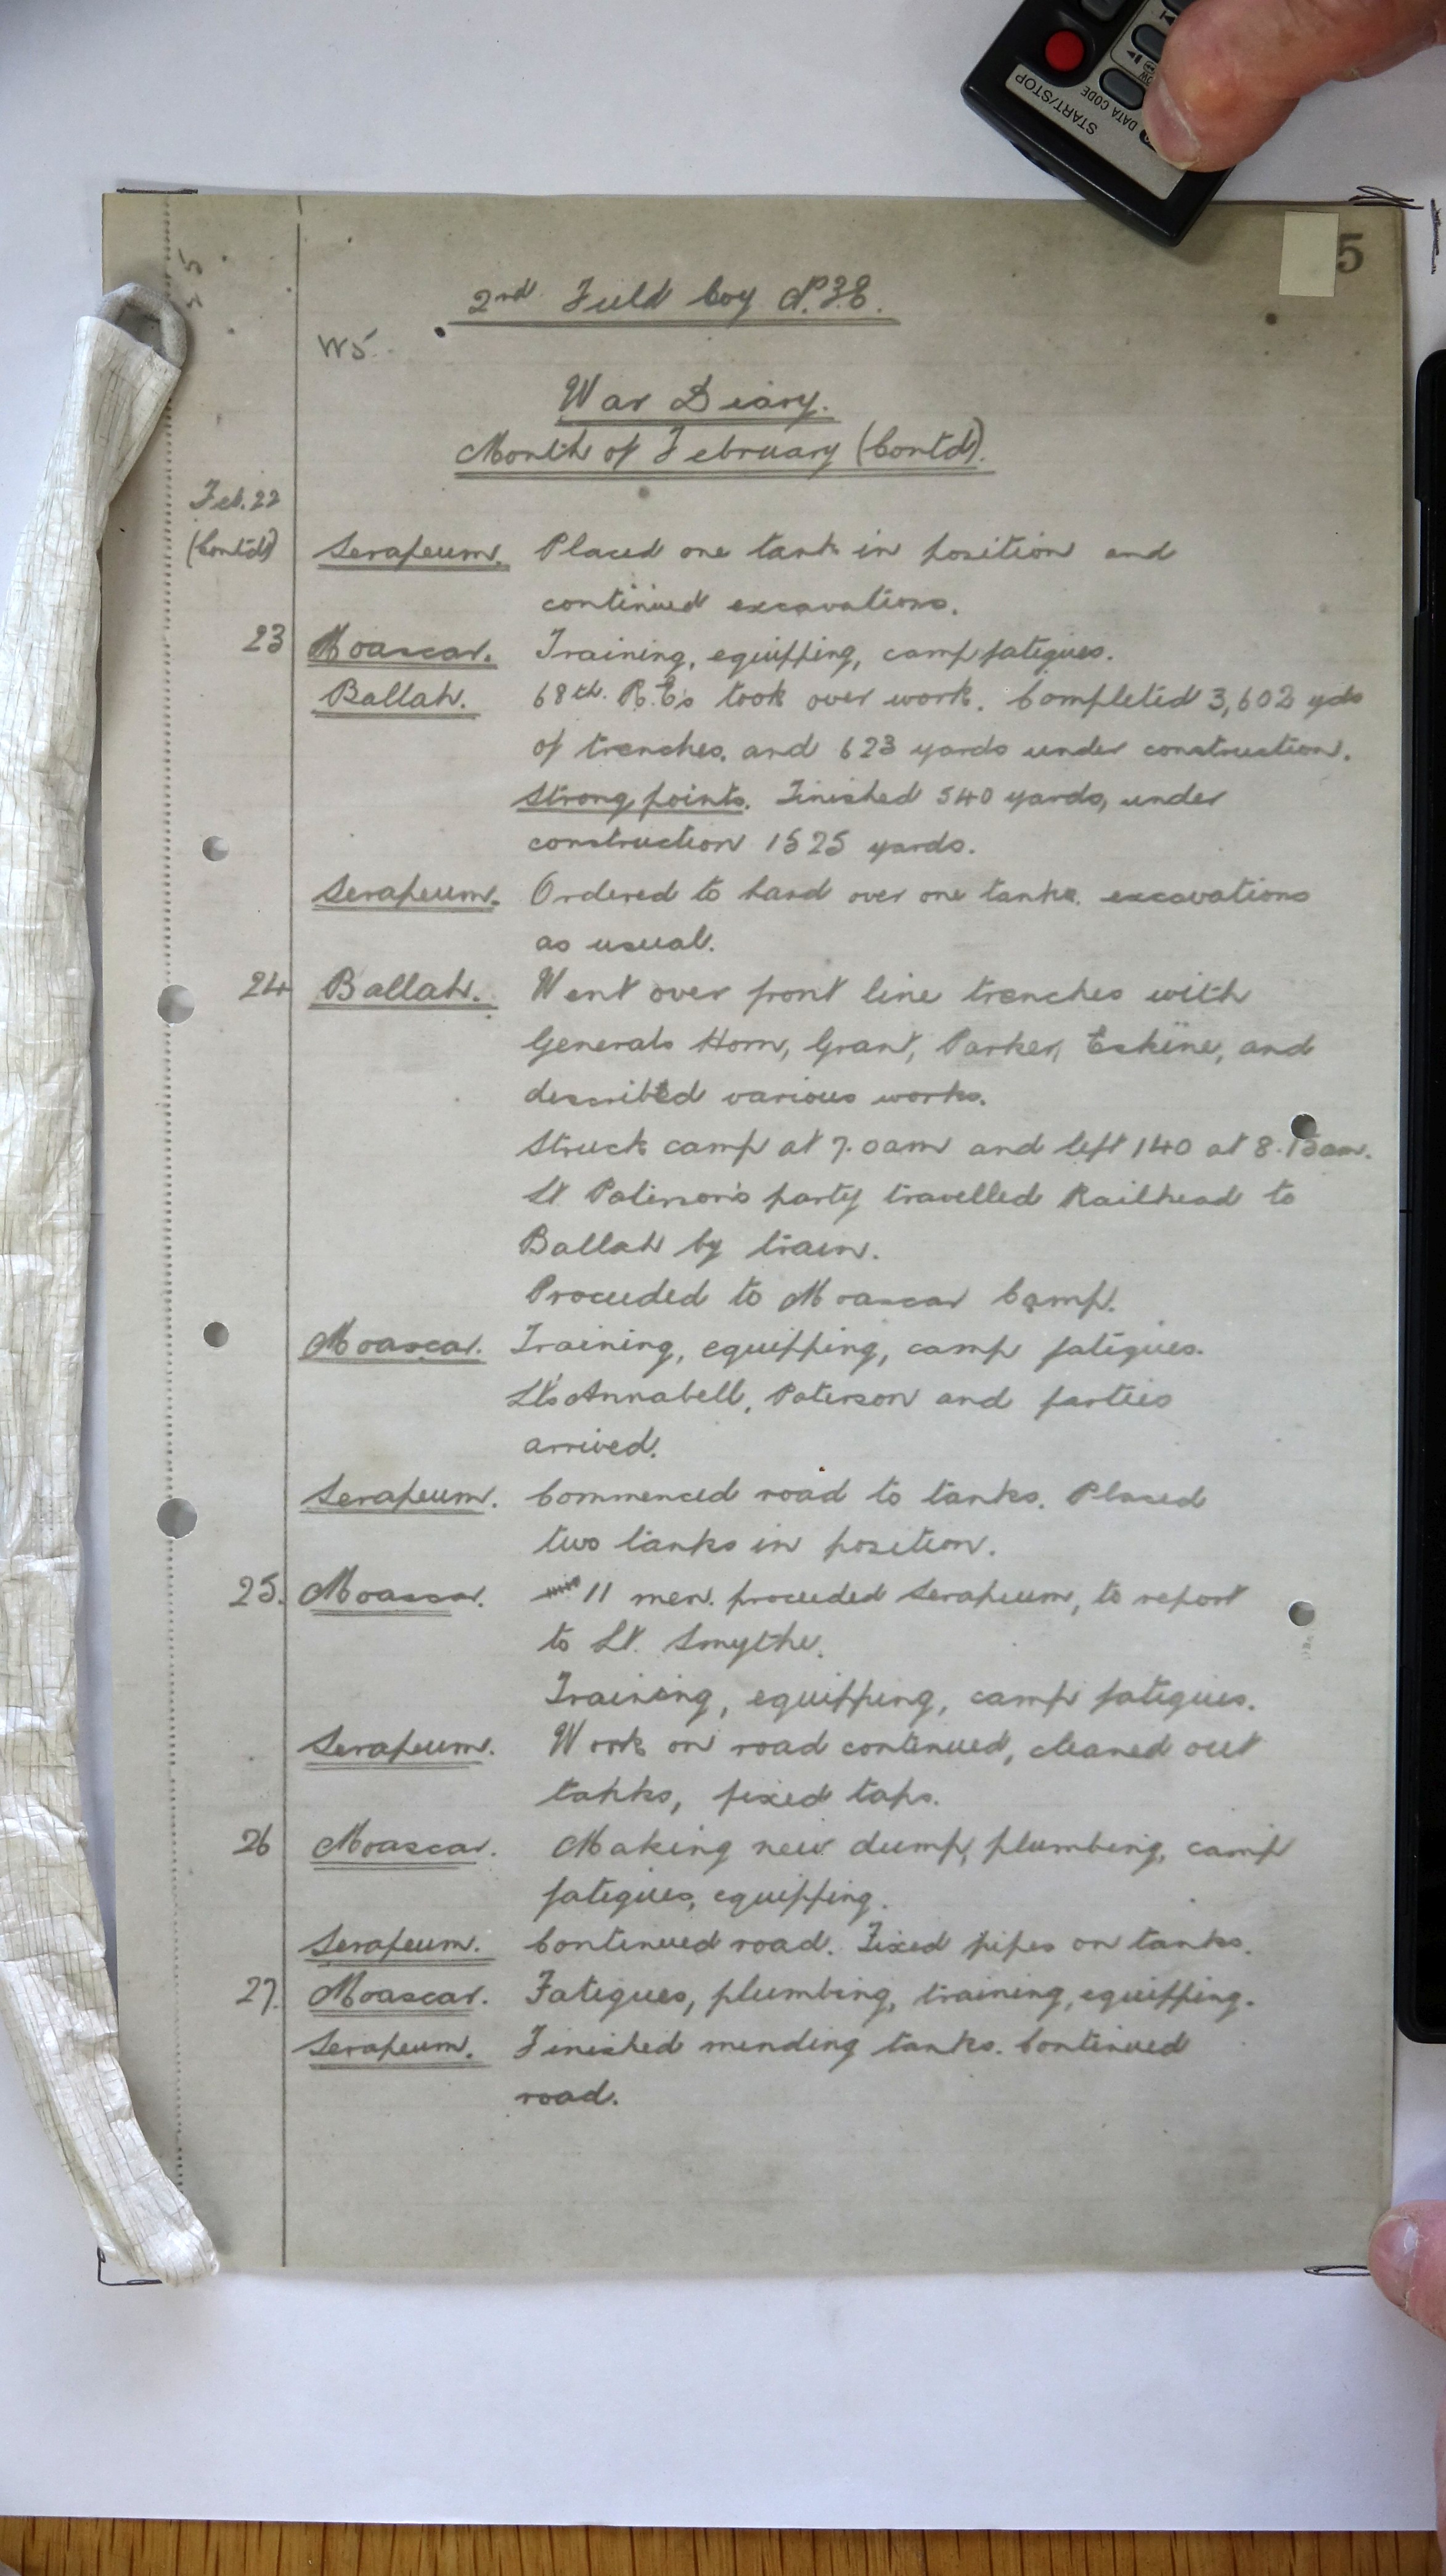 START/STOP
DATA CODE
5
2nd Field Coy N.Z.E.
W5
War Diary.
Month of February (Contd).
Feb. 22
(Contd) Serapeum. Placed one tank in position and
continued excavations.
23 Moascar. Training, equipping, camp fatigues.
Ballah. 68th. R.E's took over work. Completed 3,602 yds
of trenches, and 623 yards under construction.
Strong points. Finished 540 yards, under
construction 1525 yards.
Serapeum. Ordered to hand over one tank. excavations
as usual.
24 Ballah. Went over front line trenches with
Generals Horn, Grant, Parker, Eskine, and
described various works.
Struck camp at 7.0am and left 140 at 8.15am.
Lt Paterson's party travelled Railhead to
Ballah by train.
Proceeded to Moascar Camp.
Moascar. Training, equipping, camp fatigues.
Lts Annabell, Paterson and parties
arrived.
Serapeum. Commenced road to tanks. Placed
two tanks in position.
25. Moascar. 11 men. proceeded Serapeum, to report
to Lt. Smythe.
Training, equipping, camp fatigues.
Serapeum. Work on road continued, cleaned out
tanks, fixed taps.
26 Moascar. Making new dump, plumbing, camp
fatigues, equipping.
Serapeum. Continued road. Fixed pipes on tanks.
27. Moascar. Fatigues, plumbing, training, equipping.
Serapeum. Finished mending tanks. Continued
road.